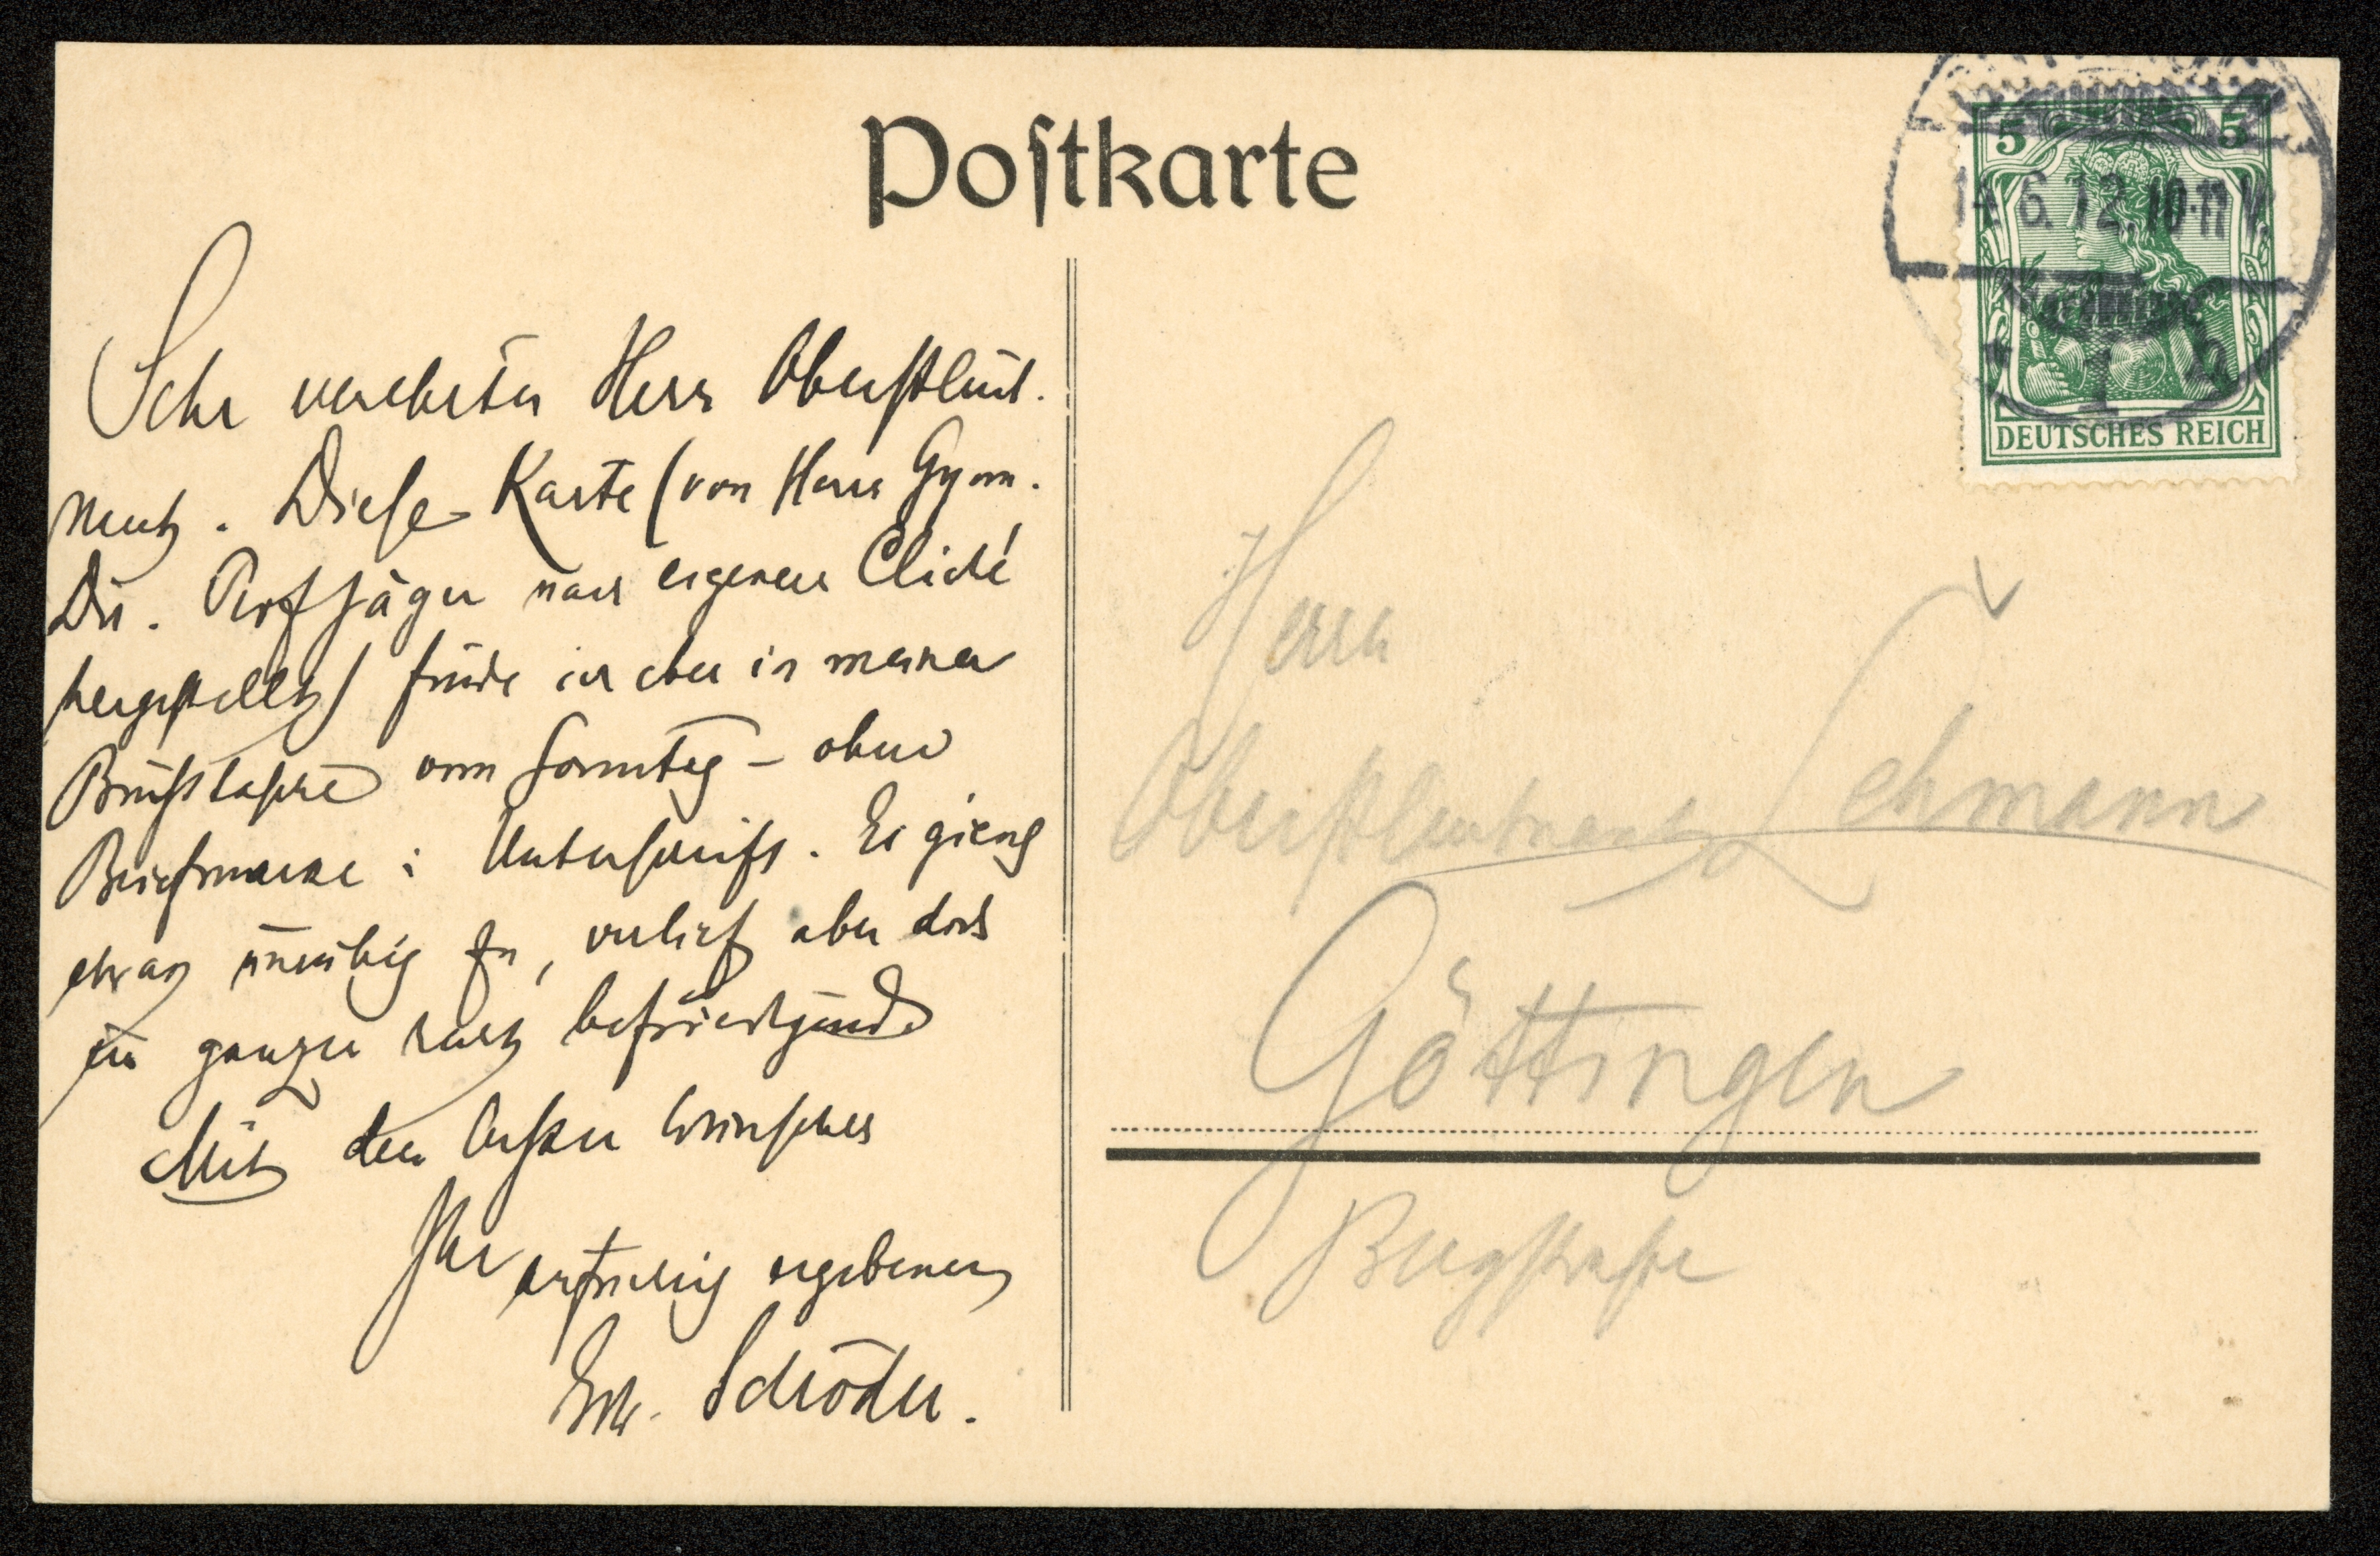 Postkarte
Sehr verehrter Herr Oberstleut-
nant. Diese Karte (von Herrn Gymn.
Dir. Prof Jäger nach eigenem Cliché
hergestellt) finde ich eben in meiner
Brusttasche vom Sonntag – ohne
Briefmarke u. Unterschrift. Es gieng
etwas unruhig zu, verlief aber doch
im ganzen recht befriedigend
Mit den besten Wünschen
Ihr aufrichtig ergebener
Edw. Schröder.
5 5
14.6.12. 10-11 V.
1 h
DEUTSCHES REICH
Herrn
Oberstleutnant Lehmann
Göttingen
Bergstraße